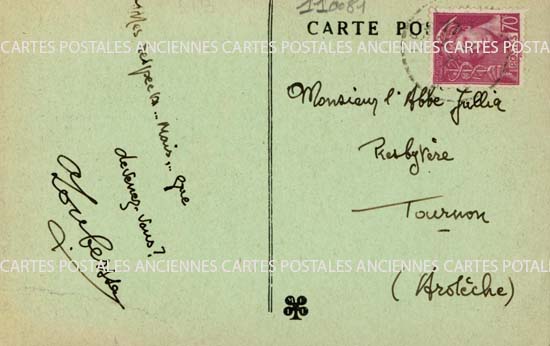 110081
CARTE POS
70
Mes respects.. Mais... que
devenez-vous?
Monsieur l'Abbé Jullia
Presbytère
Tournon
(Ardèche)
CARTES POSTALES ANCIENNES CARTES POSTALES ANCIENNES CARTES POTALES
CARTES POSTALES ANCIENNES CARTES POSTALES ANCIENNES CARTES POTALE